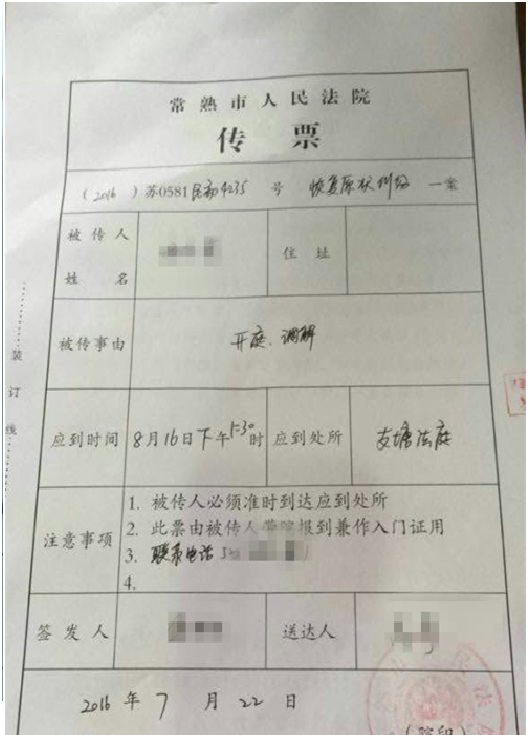 常熟市人民法院
传票
(2016)苏0581民初4235号 恢复原状纠纷 一案
被传人
姓名
住址
被传事由
开庭、调解
应到时间
8月16日下午1:30时
应到处所
支塘法庭
注意事项
1. 被传人必须准时到达应到处所
2. 此票由被传人携带报到兼作入门证用
3. 联系电话
4.
签发人
送达人
2016年7月22日
(院印)
装订线